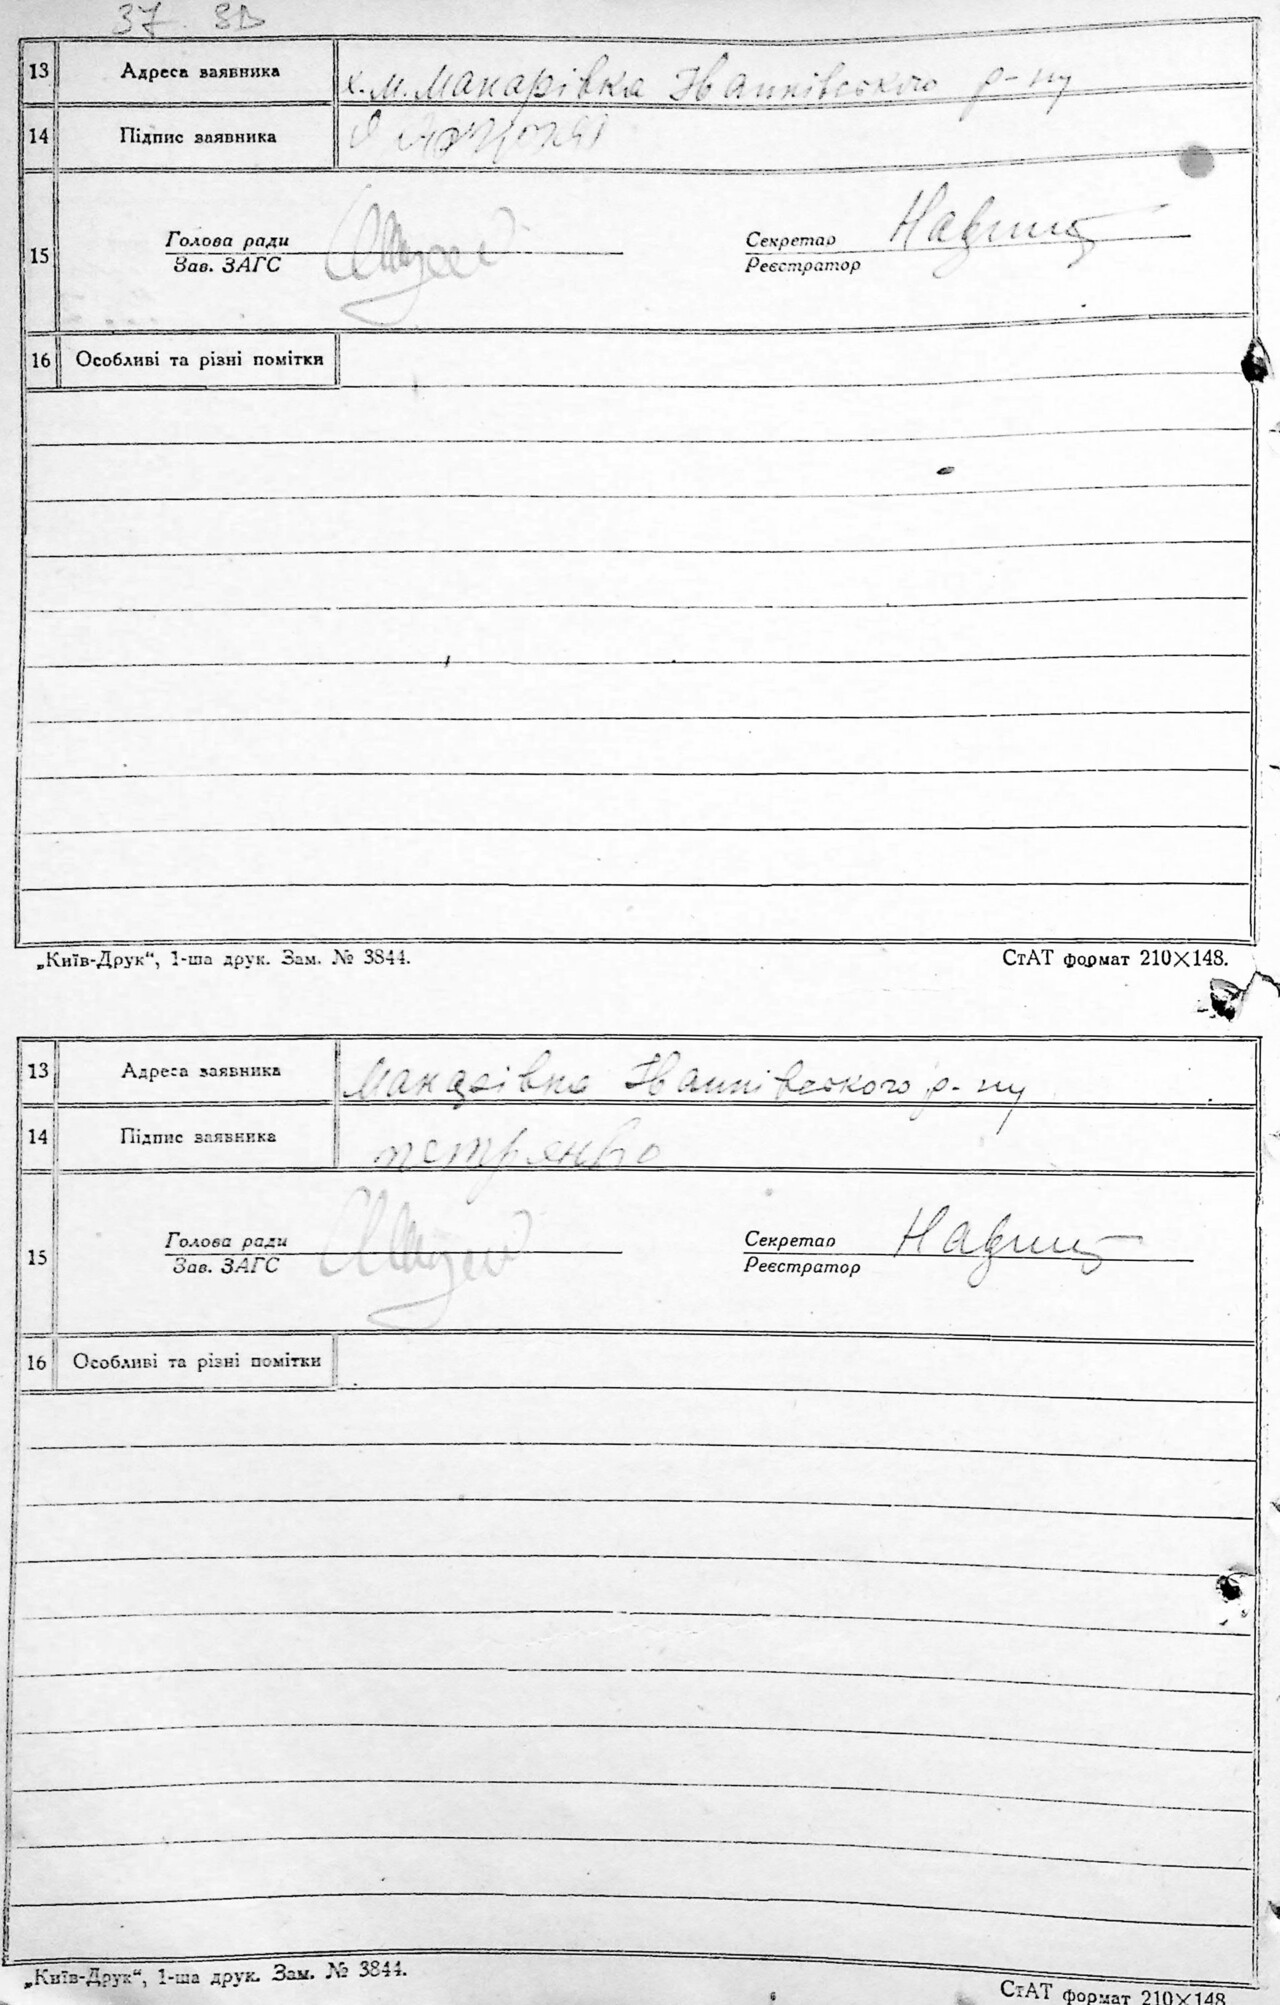 37 ЗВ
13 Адреса заявника х. М. Макарівка Іванківського р-ну
14 Підпис заявника
Голова ради Секретар
15
Зав. ЗАГС Реєстратор
16 Особливі та різні помітки
„Київ-Друк“, 1-ша друк. Зам. № 3844. СтАТ формат 210×148.
13 Адреса заявника Макарівка Іванківського р-ну
14 Підпис заявника петренко
Голова ради Секретар
15
Зав. ЗАГС Реєстратор
16 Особливі та різні помітки
„Київ-Друк“, 1-ша друк. Зам. № 3844.
СтАТ формат 210×148